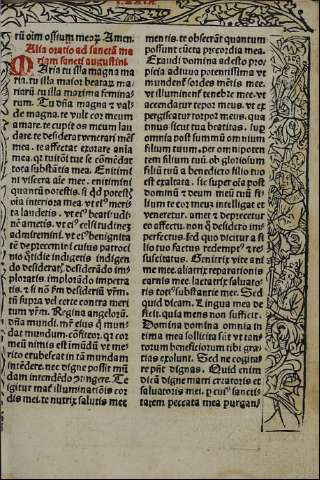 rū oīm ossium meoꝝ Amen.
Alia oratio ad sanctā ma
riam sancti augustini.
MAria tu illa magna ma
ria, tu illa maior beataꝝ ma
riarū tu illa maxima feminaꝝ
rum. Tu dña magna ⁊ val
de magna. te vult cor meum
amare. te cupit os meum lau
dare te desiderat venerari mēs
mea. te affectat exorare aīa
mea. qꝛ tuitōi tue se cōmēdat
tota substātia mea. Enitimi
ni viscera aīe mee. enitimini
quantū potestis. si qd potestis
oīa interiora mea. vt eiꝰ meri
ta laudetis. vt eiꝰ beatitudi
nē ametis. vt eiꝰ celsitudinez
admiremini. vt eiꝰ benignita
tē deprecemini cuius patroci
nio qtidie indigetis indigen
do desiderat desiderādo im
ploratis implorādo impetra
tis. ⁊ si nō ſm desideriū vr̄m.
tñ supra vel certe contra meri
tum vr̄m. Regina angeloꝝ.
dña mundi. mr̄ eius q mun
dat mundum. cōfiteor. qꝛ cor
meū nimis est īmūdū vt me
rito erubescat in tā mundam
intēdere. nec digne possit mū
dam intendēdo ꝯtingere. Te
igitur mat̄ illuminatiōis cor
dis mei. te nutrix salutis mee
mentis. te obsecrāt quantum
possunt cūcta p̄cordia mea.
Exaudi domina adesto pro
picia adiuva potentissima vt
mundent sordes mētis mee.
vt illuminent̄ tenebre mee. vt
accendatur tepor meus. vt ex
pergiscatur torpor meus. qua
tinus sicut tua beatitas. sup
omnia post summū omnium
filium tuum. per omnipoten
tem filium tuū. ob gloriosum
filiū tuū a benedicto filio tuo
est exaltata. sic super oīa post
dominū ⁊ deum meū tuū fi
lium te cor meuꝫ intelligat et
veneretur. amet ⁊ deprecetur
eo affectu. non q̄ desidero im
perfectus. sed quo dicitur a fi
lio tuo factus redemptꝰ ⁊ re
suscitatus. Genitrix vite ani
me mee. altrix reparationis
carnis mee. lactatrix salvato
ris totiꝰ substantie mee. Sed
quid dicam. Lingua mea de
ficit. quia mens non sufficit.
Domina domina omnia in
tima mea sollicita sūt vt tan
torum beneficiorum tibi gra
tias exolunt. Sed ne cogita
re pn̄t dignas. Quid enim
dicā digne matri creatoris et
saluatoris mei. p cuiꝰ sancti
tatem peccata mea purgan